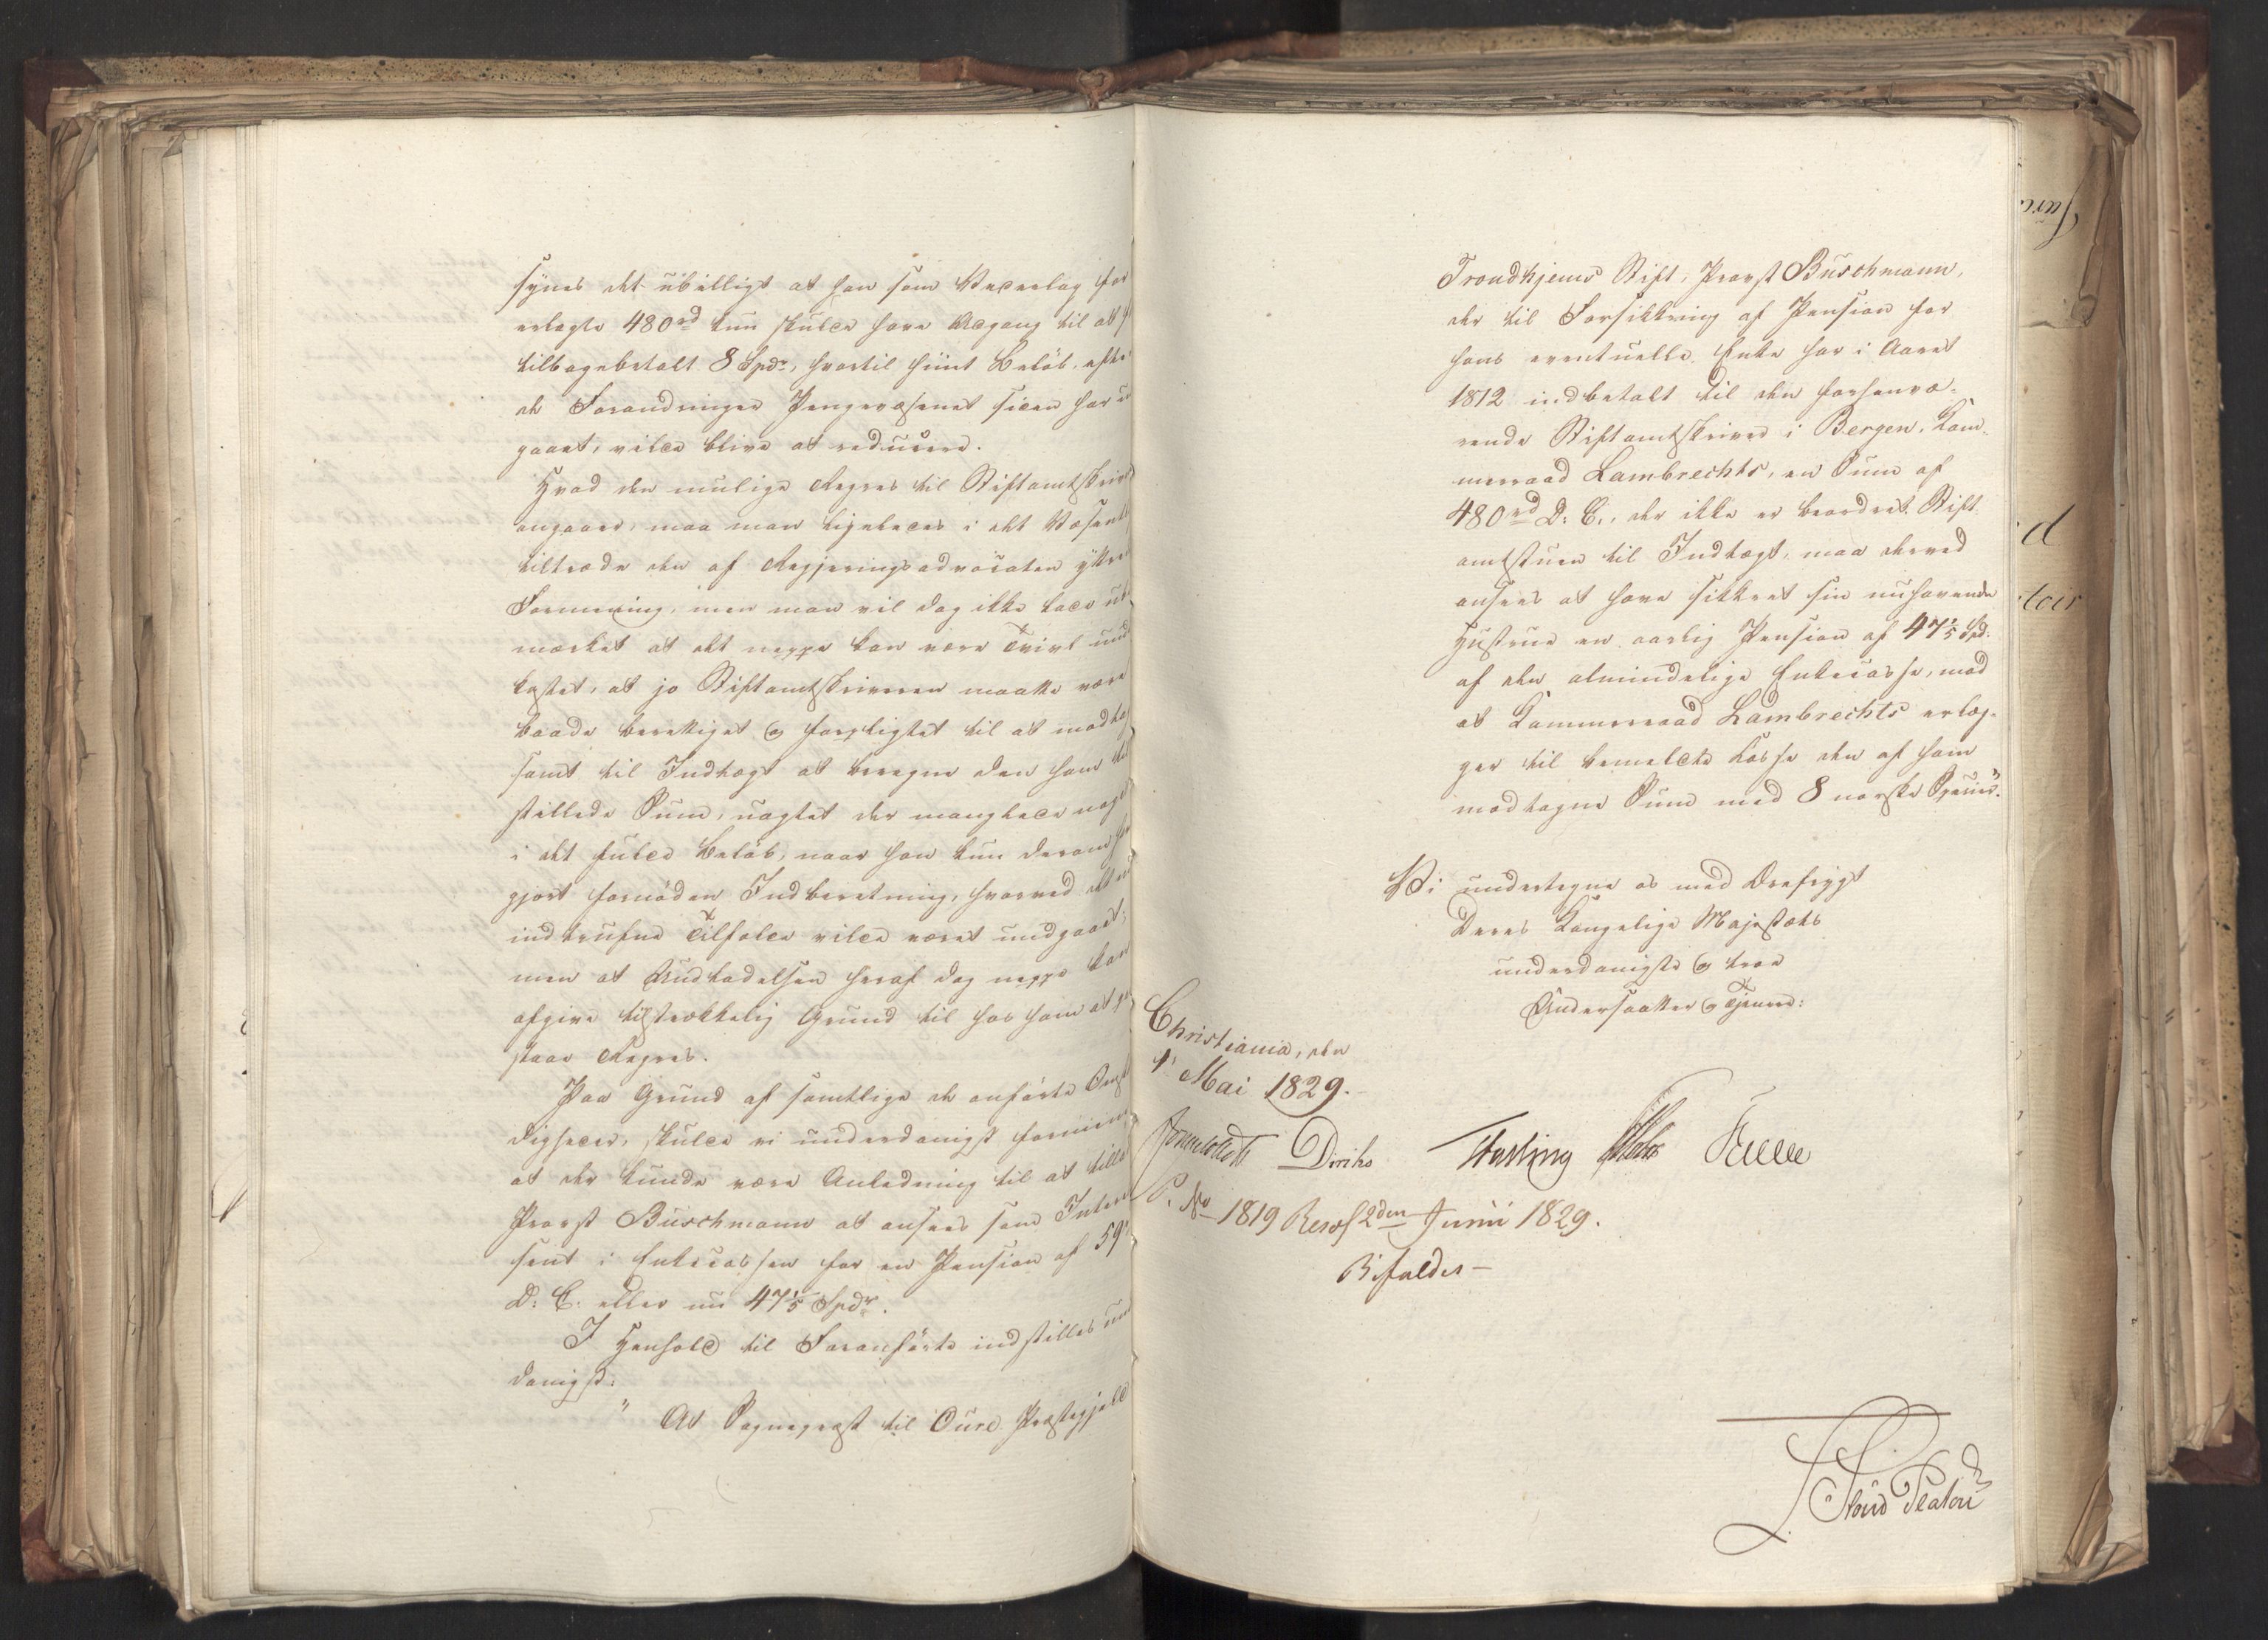 synes det ubilligt at han som Vederlag for
erlagte 480rd kun skulde have Adgang til at f
tilbagebetalt 8 Spdr, hvortil hiint Beløb, efter
de Forandringer Pengevæsenet siden har u
gaaet, vilde blive at reducere.
Hvad den mulige Regres til Stiftamtskriv
angaaer, maa man ligeledes i det Væsentl
tiltræde den af Regjeringsadvocaten yttre
Formening, men man vil dog ikke lade ube
mærket at det neppe kan være Tvivl und
kastet, at jo Stiftamtskriveren maatte være
baade berettiget og forpligtet til at modta
samt til Indtægt at beregne den ham til
stillede Sum, uagtet der manglede noget
i det fulde Beløb, naar han kun derom ha
gjort fornöden Indberetning, hvorved det nu
indtrufne Tilfælde vilde været undgaaet;
men at Undladelsen heraf dog neppe kan
afgive tilstrækkelig Grund til hos ham at paa
staae Regres.
Paa Grund af samtlige de anførte Omst
digheder, skulde vi underdanigst formene,
at der kunde være Anledning til at tillade
Provst Buschmann at ansees som Interes
sent i Enkecassen for en Pension af 59
D: C. eller nu 47 1/5 Spdr.
I Henhold til Foranførte indstilles un
danigst:
" At Sognepræst til Oure Præstegjeld
Trondhjems Stift, Provst Buschmann,
der til Forsikkring af Pension for
hans eventuelle Enke har i Aaret
1812 indbetalt til den forhenvæ-
rende Stiftamtskriver i Bergen, Kam-
merraad Lambrechts, en Sum af
480rd D: C., der ikke er beordret Stift
amtstuen til Indtægt, maa derved
ansees at have sikkret sin nuhavende
Hustrue en aarlig Pension af 47 1/5 Spd.
af den almindelige Enkecasse, mod
at Kammerraad Lambrechts erlæg-
ger til bemeldte Casse den af ham
modtagne Sum med 8 norske Species."
Vi undertegne os med Dref[r]ygt
Deres Kongelige Majestæts
underdanigste og troe
Undersaatter og Tjenere:
Christiania, den
1' Mai 1829.
Jonas Collett Diriks Hasting Fasting
P. No 1819 Resol 2den Junii 1829.
Bifaldes –
L. Stoud Platou